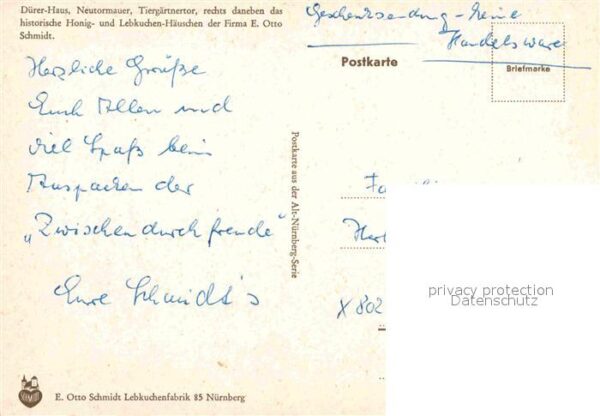 Dürer-Haus, Neutormauer, Tiergärtnertor, rechts daneben das
historische Honig- und Lebkuchen-Häuschen der Firma E. Otto
Schmidt.
Geschenksendung - keine
Handelsware
Postkarte
Briefmarke
Herzliche Grüße
Euch Allen und
viel Spaß beim
Auspacken der
„Zwischendurchfreude"
Eure Schmidt's
Postkarte aus der Alt-Nürnberg-Serie
Fa
X 802
privacy protection
Datenschutz
E. Otto Schmidt Lebkuchenfabrik 85 Nürnberg